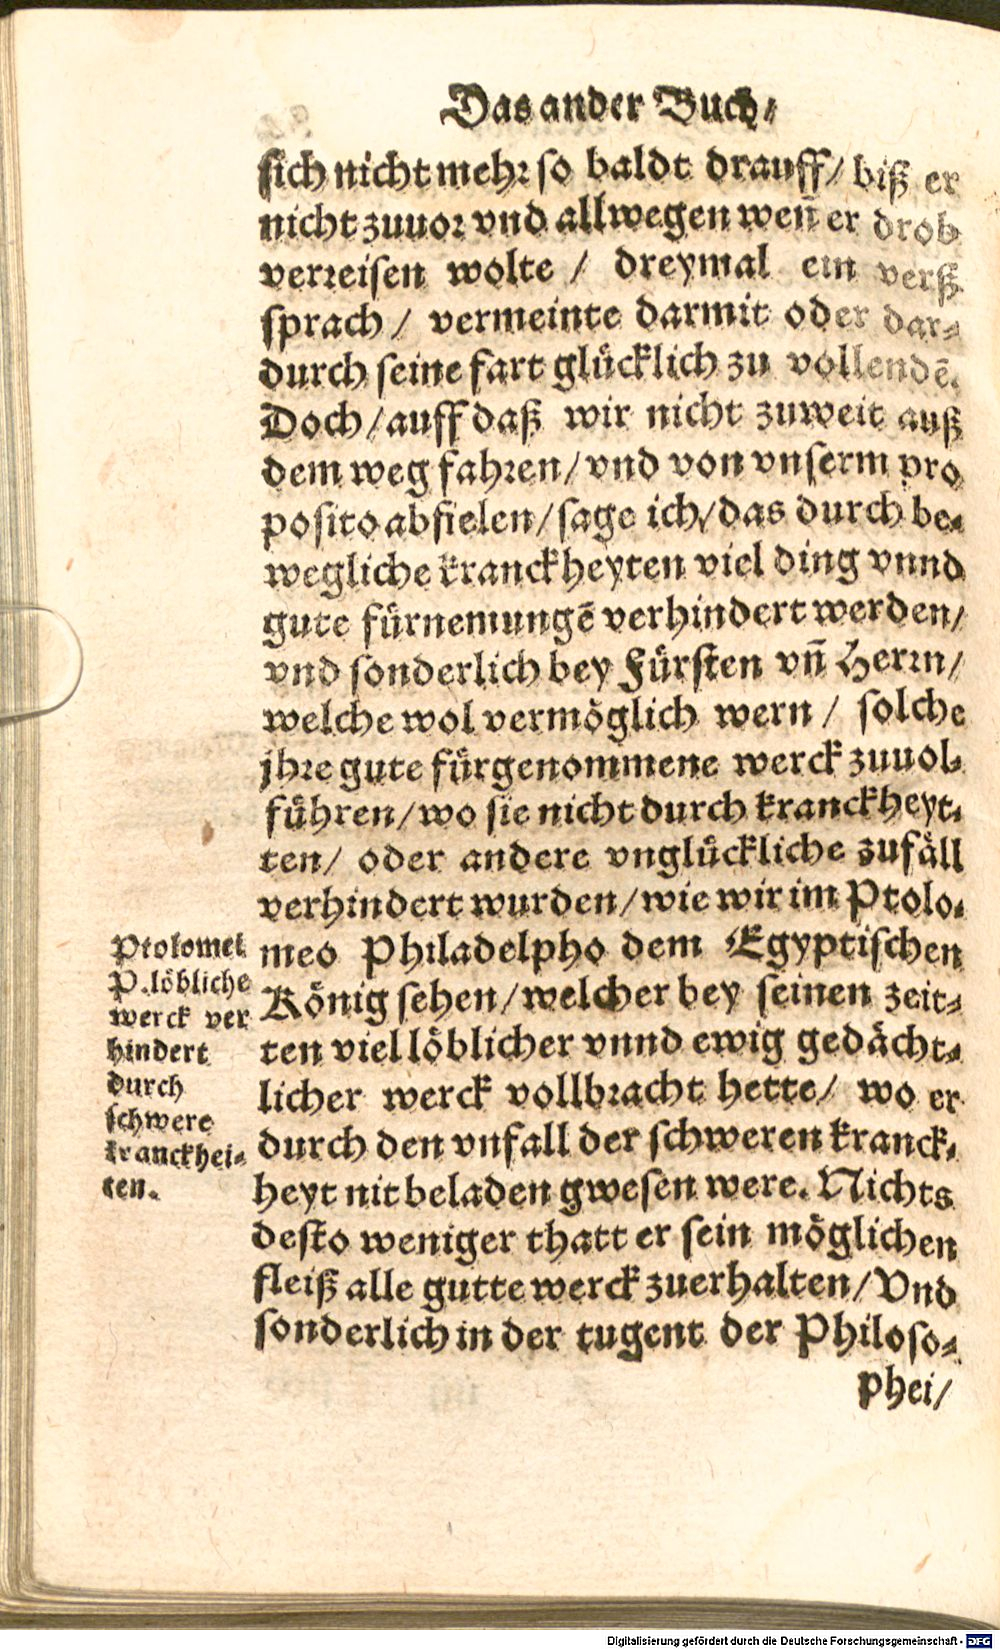 Das ander Buch/
sich nicht mehr so baldt drauff/ biß er
nicht zuuor vnd allwegen weñ er drob
verreisen wolte / dreymal ein verß
sprach / vermeinte darmit oder dar-
durch seine fart glücklich zu vollendē.
Doch/auff daß wir nicht zuweit auß
dem weg fahren/vnd von vnserm pro
posito abfielen/sage ich/das durch be-
wegliche kranckheyten viel ding vnnd
gute fürnemungē verhindert werden/
vnd sonderlich bey Fürsten vñ Herrn/
welche wol vermöglich wern / solche
jhre gute fürgenommene werck zuuol-
führen/wo sie nicht durch kranckheyt-
ten/ oder andere vnglückliche zufäll
verhindert wurden/wie wir im Ptolo-
meo Philadelpho dem Egyptischen
König sehen/welcher bey seinen zeit-
ten viel löblicher vnnd ewig gedächt-
licher werck vollbracht hette/ wo er
durch den vnfall der schweren kranck-
heyt nit beladen gwesen were. Nichts
desto weniger thatt er sein möglichen
fleiß alle gutte werck zuerhalten/Vnd
sonderlich in der tugent der Philoso-
phei/
Ptolomei
P.löbliche
werck ver
hindert
durch
schwere
kranckhei-
ten.
Digitalisierung gefördert durch die Deutsche Forschungsgemeinschaft - DFG